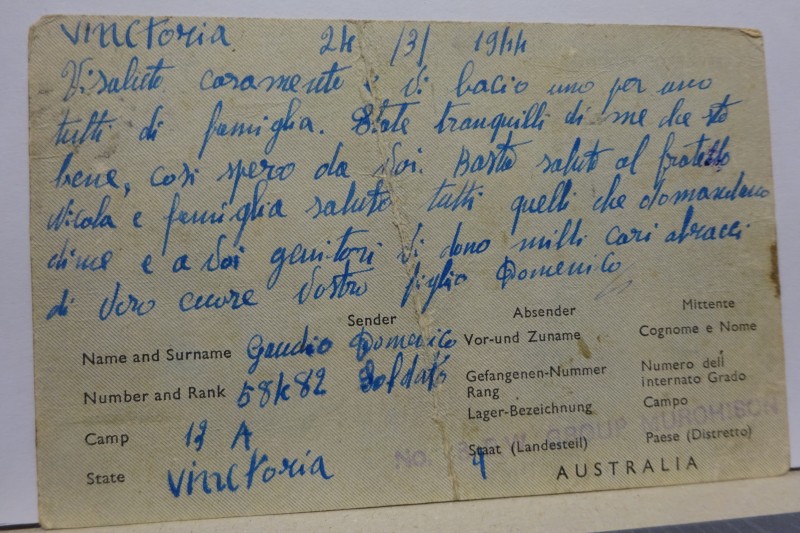 Vinctoria 24/3/1944
Vi saluto caramente e vi bacio uno per uno
tutti di famiglia. State tranquilli di me che sto
bene, così spero da Voi. Basta saluto al fratello
Nicola e famiglia saluto tutti quelli che domandano
di me e a Voi genitori Vi dono milli cari abracci
di Vero cuore Vostro figlio Domenico
Sender Absender Mittente
Name and Surname Gaudio Domenico Vor-und Zuname Cognome e Nome
Number and Rank Soldato Gefangenen-Nummer Rang Numero dell internato Grado
Camp 13 A Lager-Bezeichnung Campo
No. GROUP MURCHISON
State Vinctoria Staat (Landesteil) Paese (Distretto)
AUSTRALIA